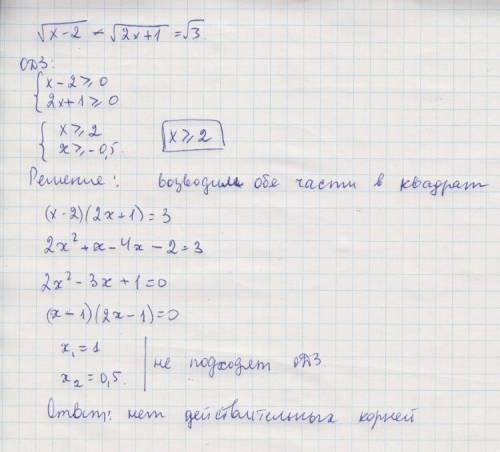 √x-2 - √2x+1 = √3
ОДЗ:
{ x-2 ≥ 0
2x+1 ≥ 0
{ x ≥ 2
x ≥ -0,5. x ≥ 2
Решение: возводим обе части в квадрат
(x-2)(2x+1) = 3
2x² + x - 4x - 2 = 3
2x² - 3x + 1 = 0
(x-1)(2x-1) = 0
x₁ = 1
x₂ = 0,5. | не подходят ОДЗ
Ответ: нет действительных корней